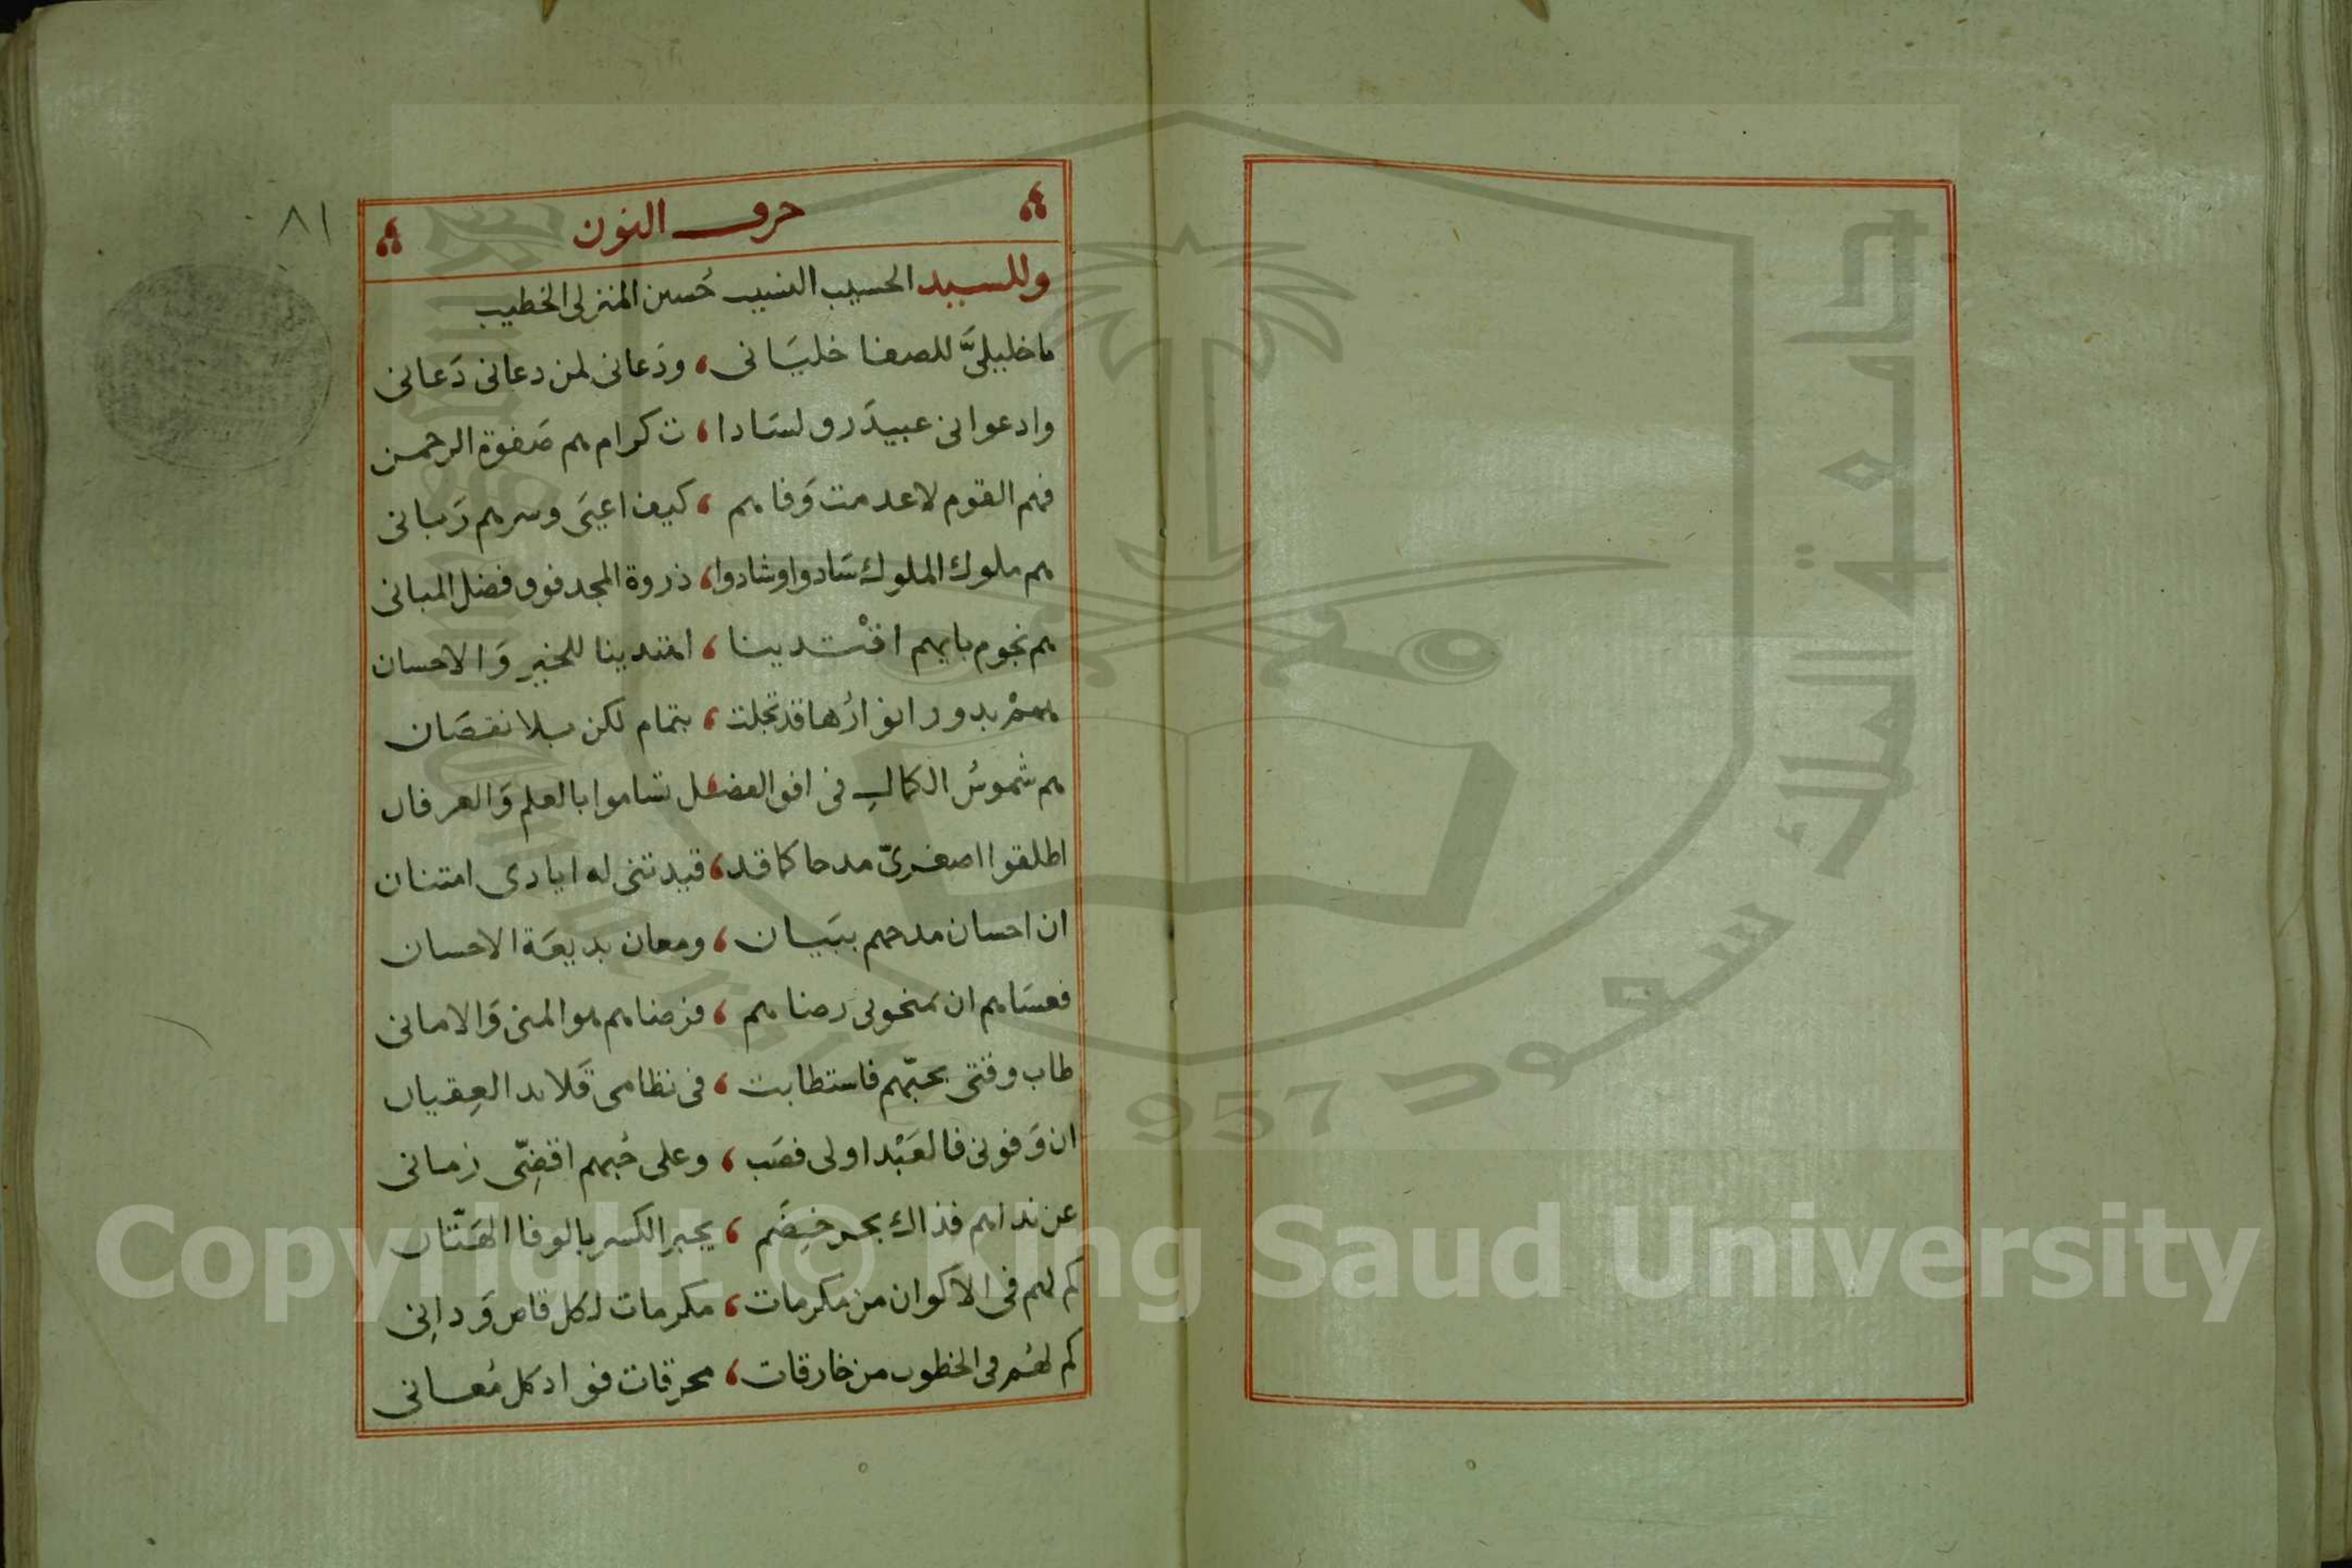 ٨١
حرف النون
وللسيد الحسيب النسيب حُسين المنزلي الخطيب
ما خليليَّ للصفا خليَانى ، ودَعانى لمن دعانى دَعانى
وادعوانى عبيدَ رو لسَادا ، ت كرام هم صَفوة الرحمن
فهم القوم لا عدمت وَفاهم ، كيف اعيَى وسرهم رَبانى
هم ملوك الملوك سَادوا وشادوا ، ذروة المجد فوق فضل المبانى
هم نجوم بايهم اقْتدينا ، اهتدينا للخير وَالاحسان
همْ بدور انوارُها قد تجلت ، بتمام لكن بلا نقصَان
هم شموسُ الكمالِ فى افق الفضل تساموا بالعلم وَالعرفان
اطلقوا اصغريّ مدحا كما قد ، قيدتنى له ايادى امتنان
ان احسان مدحهم ببيَان ، ومعان بديعَة الاحسان
فعسَاهم ان يمنحونى رضاهم ، فرضاهم هو المنى وَالامانى
طاب وقتى بحبّهم فاستطابت ، فى نظامى قَلائد العِقيان
ان وَفونى فالعَبْد اولى فصَب ، وعلى حُبهم اقضِّى زمانى
عن نداهم فذاك بحر خِضَم ، يجبر الكسر بالوفا الهَتّان
كم لهم فى الاكوان من مكرمات ، مكرمات لكل قاص وَدانِى
كم لهُم فى الخطوب من خارقات ، محرقات فواد كل مُعانى
جامعة الملك سعود
1957
Copyright © King Saud University